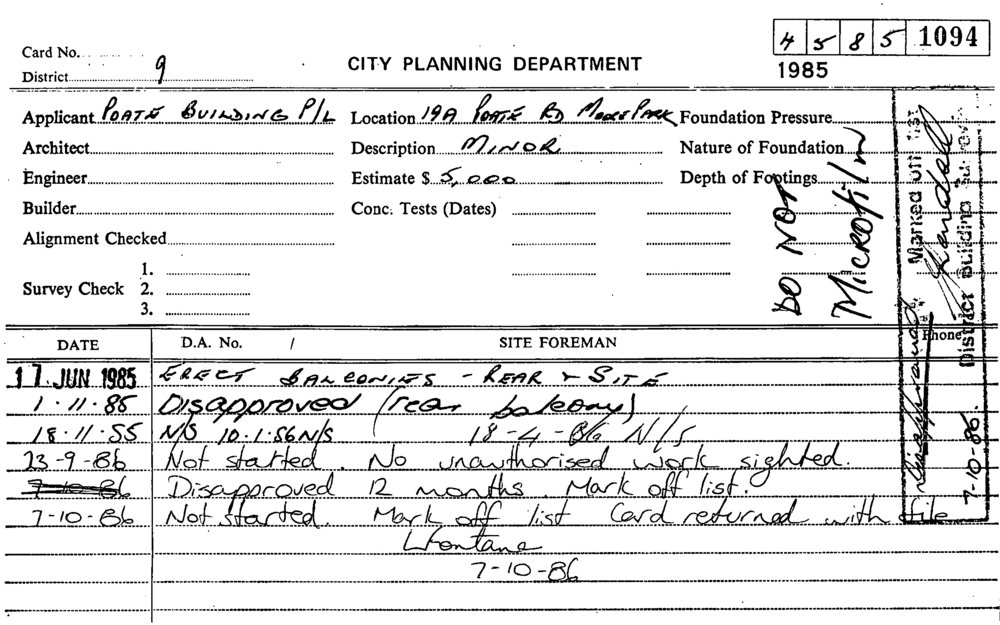 4 5 8 5 1094
Card No.
CITY PLANNING DEPARTMENT
1985
District 9
Applicant POATE BUILDING P/L Location 19A POATE RD MOORE PARK Foundation Pressure
Architect Description MINOR Nature of Foundation
Engineer Estimate $ 5,000 Depth of Footings
Builder Conc. Tests (Dates)
Alignment Checked
1.
Survey Check 2.
3.
DO NOT
Microfilm
Marked off list
District Building Surveyor
Disapproved
7-10-86.
DATE D.A. No. / SITE FOREMAN Phone
17 JUN 1985 ERECT BALCONIES - REAR & SITE
1·11·85 Disapproved (rear balcony)
18·11·85 N/S 10.1.86 N/S 18-4-86 N/S
23-9-86 Not started. No unauthorised work sighted.
7-10-86 Disapproved 12 months. Mark off list.
7-10-86 Not started. Mark off list Card returned with file
7-10-86